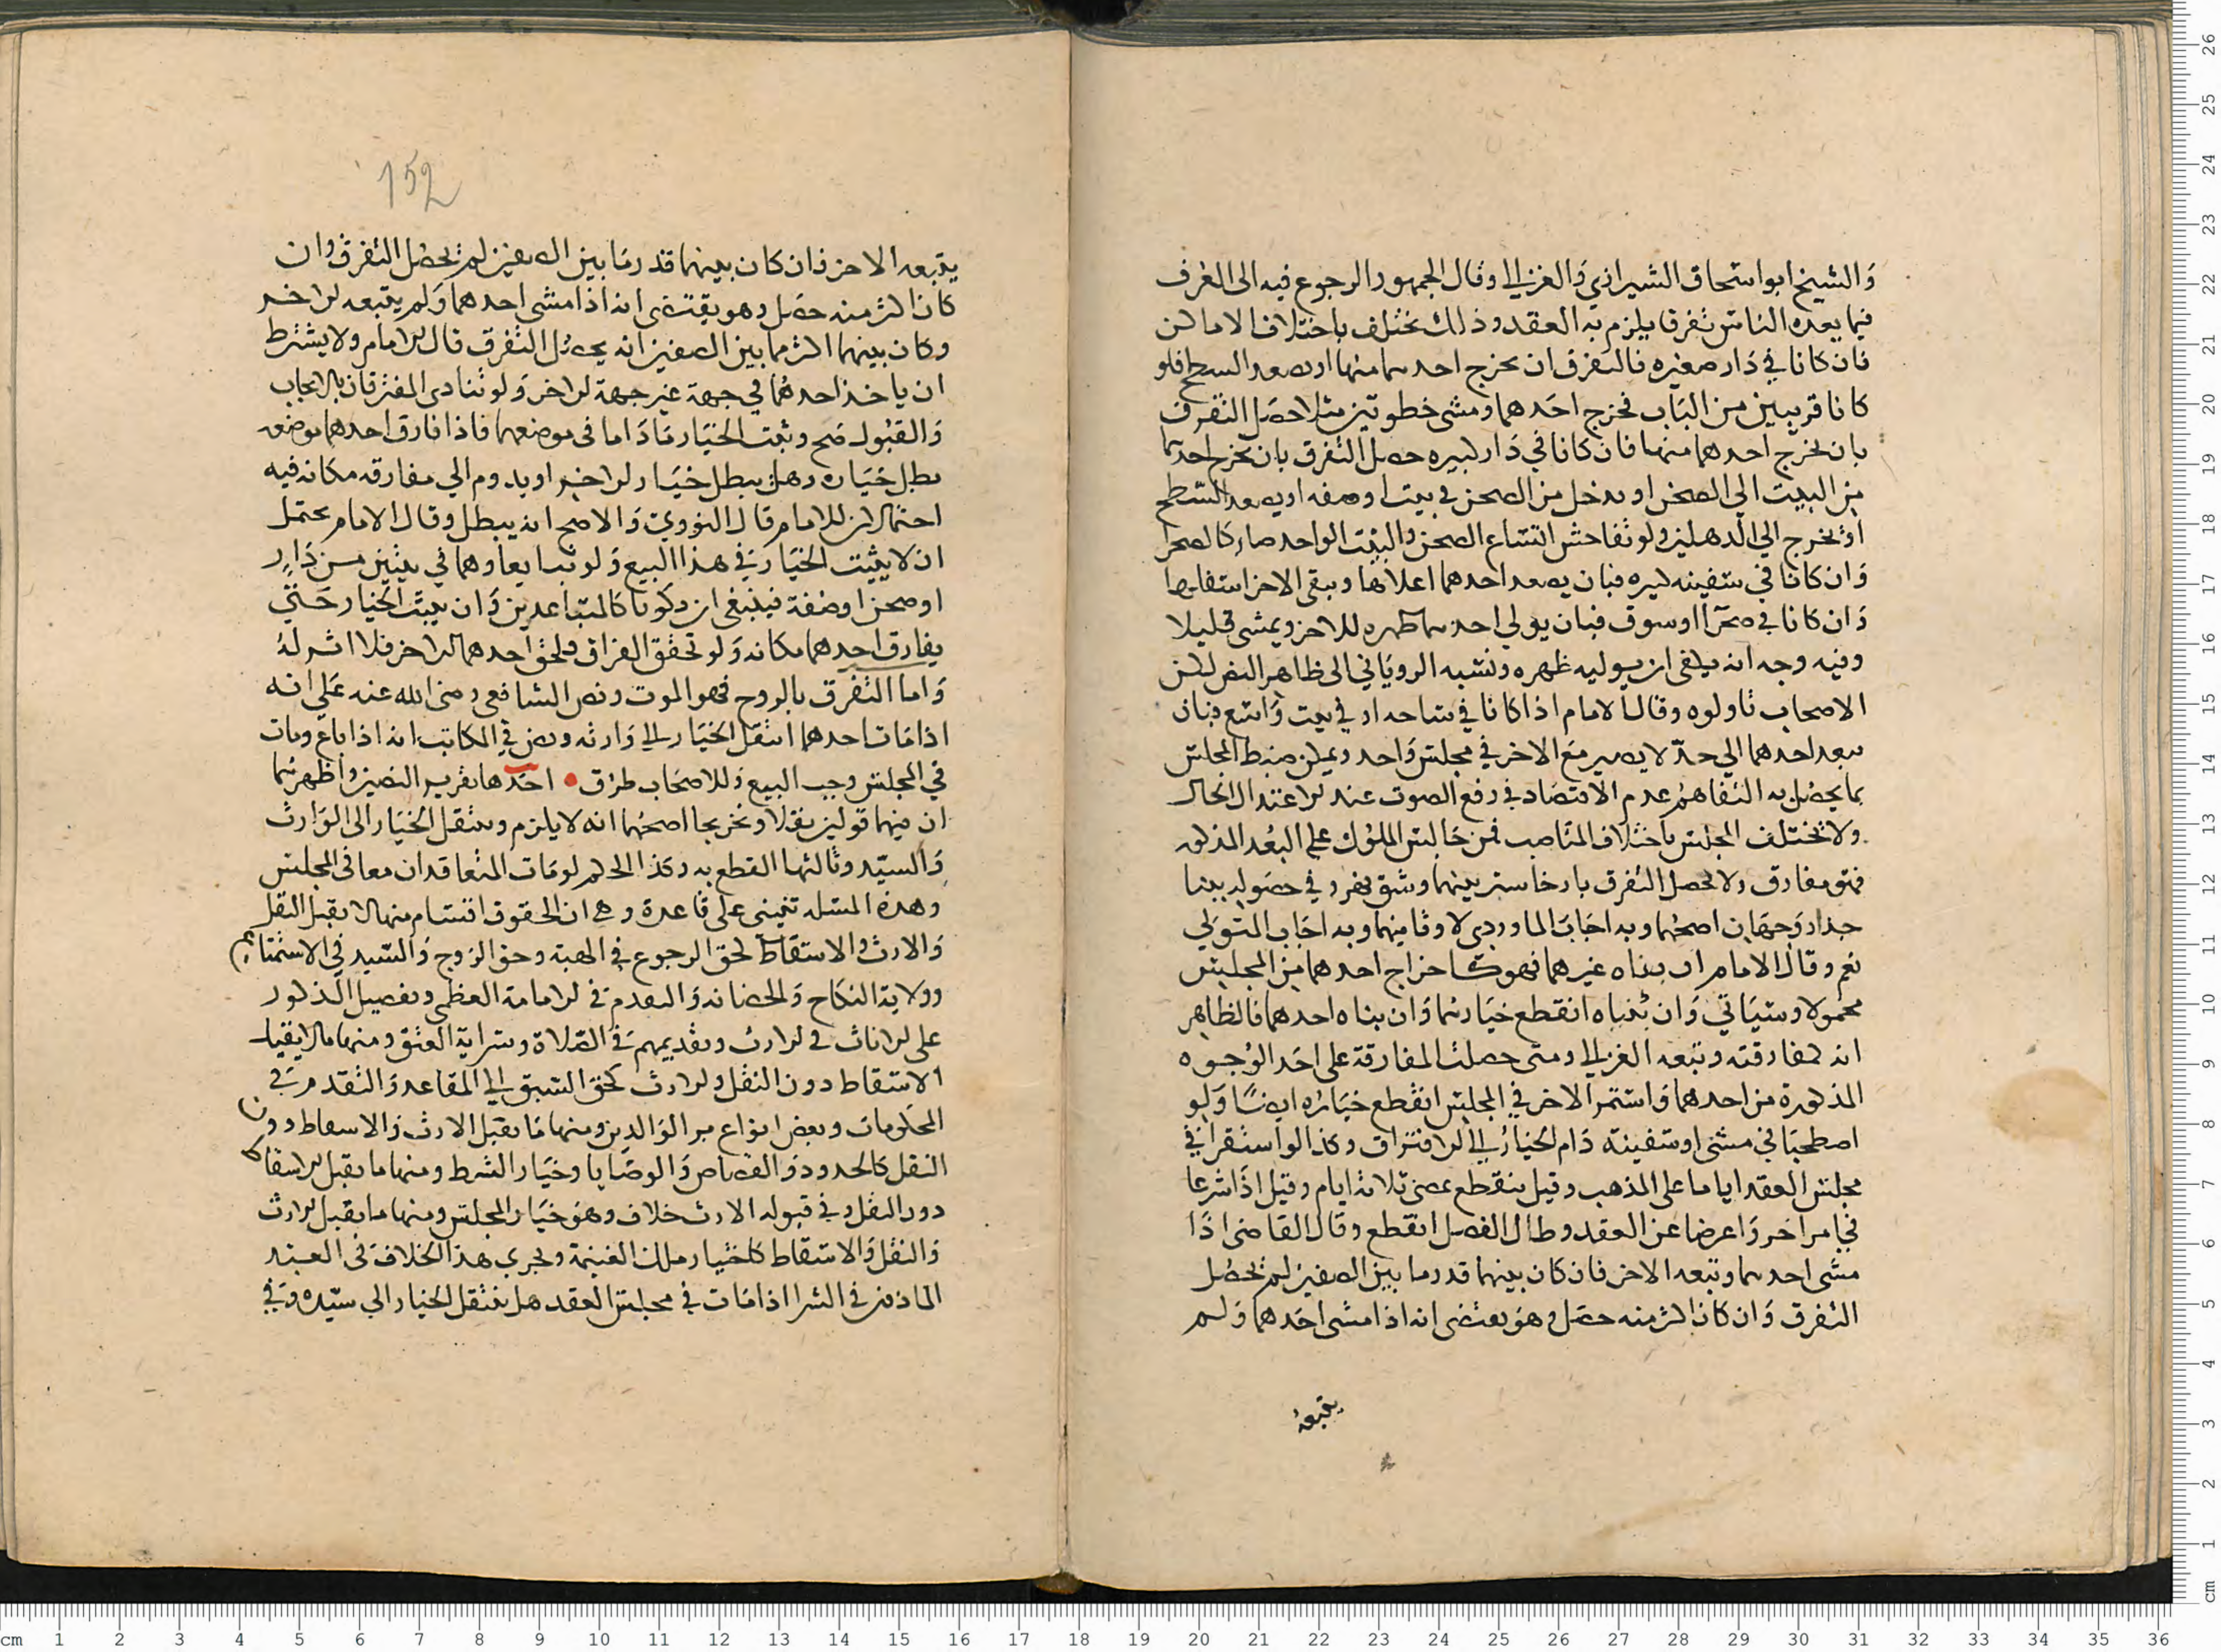 والشيخ ابو اسحاق الشيرازي والغزالي وقال الجمهور الرجوع فيه الى العرف
فيما يعده الناس تفرقا يلزم به العقد وذلك يختلف باختلاف الاماكن
فان كانا في دار صغيره فالتفرق ان يخرج احدهما منها او يصعد السطح فلو
كانا قريبين من الباب فخرج احدهما ومشى خطوتين مثلا حصل التفرق
بان يخرج احدهما منها فان كانا في دار كبيره حصل التفرق بان يخرج احدهما
من البيت الي الصحن او يدخل من الصحن في بيت او صفه او يصعد السطح
او يخرج الي الدهليز ولو تفاحش اتساع الصحن والبيت الواحد صار كالصحرا
وان كانا في سفينه كبيره فبان يصعد احدهما اعلاها ويبقى الاخر اسفلها
وان كانا في صحرآ او سوق فبان يولي احدهما ظهره للاخر ويمشي قليلا
وفيه وجه انه يكفي ان يوليه ظهره ونسبه الروياني الى ظاهر النص لكن
الاصحاب تاولوه وقال الامام اذا كانا في ساحه او في بيت واسع فبان
يبعد احدهما الي حد لا يصير مع الاخر في مجلس واحد ويمكن ضبط المجلس
بما يحصل به التفاهم عدم الاقتصاد في رفع الصوت عند اعتدال الحال
ولا يختلف المجلس باختلاف المناصب فمن جالس الملوك على البعد المذكور
فهو مفارق ولا يحصل التفرق بارخا ستر بينهما وشق نهر وفي حصوله ببنا
جدار وجهان اصحهما وبه اجاب الماوردي لا وثانيهما وبه اجاب المتولي
نعم وقال الامام ان بناه غيرهما فهو كاخراج احدهما من المجلس
محمولا وسياتي وان بنياه انقطع خيارهما وان بناه احدهما فالظاهر
انه كمفارقته وتبعه الغزالي ومتى حصلت المفارقة على احد الوجوه
المذكورة من احدهما واستمر الاخر في المجلس انقطع خياره ايضا ولو
اصطحبا في مشى او سفينة دام الخيار الي الافتراق وكذا لو استقرا في
مجلس العقد اياما على المذهب وقيل ينقطع بمضي ثلاثة ايام وقيل اذا شرعا
في امر اخر واعرضا عن العقد وطال الفصل انقطع وقال القاضي اذا
مشى احدهما وتبعه الاخر فان كان بينهما قدر ما بين الصفين لم يحصل
التفرق وان كان اكثر منه حصل وهو يقتضي انه اذا مشى احدهما ولم
يتبعه
152
يتبعه الاخر فان كان بينهما قدر ما بين الصفين لم يحصل التفرق وان
كان اكثر منه حصل وهو يقتضي انه اذا مشى احدهما ولم يتبعه الاخر
وكان بينهما اكثر مما بين الصفين انه يحصل التفرق قال الامام ولا يشترط
ان ياخذ احدهما في جهة غير جهة الاخر ولو تنادى المفترقان بالايجاب
والقبول صح وثبت الخيار ما داما في موضعهما فاذا فارق احدهما موضعه
بطل خياره وهل يبطل خيار الاخر او يدوم الي مفارقه مكانه فيه
احتمالان للامام قال النووي والاصح انه يبطل وقال الامام يحتمل
ان لا يثبت الخيار في هذا البيع ولو تبايعا وهما في بيتين من دار
او صحن او صفة فينبغي ان يكونا كالمتباعدين وان يثبت الخيار حتي
يفارق احدهما مكانه ولو تحقق الفراق ولحق احدهما الاخر فلا اثر له
واما التفرق بالروح فهو الموت ونص الشافعي رضى الله عنه علي انه
اذا مات احدهما انتقل الخيار الي وارثه ونص في المكاتب انه اذا باع ومات
في المجلس وجب البيع وللاصحاب طرق • احدها تقرير النصين واظهرهما
ان فيهما قولين نقلا وتخريجا اصحهما انه لا يلزم وينتقل الخيار الى الوارث
والسيد وثالثها القطع به وكذا الحكم لو مات المتعاقدان معا في المجلس
وهذه المسله تنبني على قاعدة وهي ان الحقوق اقسام منها لا يقبل النقل
والارث والاسقاط كحق الرجوع في الهبة وحق الزوج والسيد في الاستمتاع
وولاية النكاح والحضانه والتقدم في الامامة العظمى وتفصيل الذكور
على الاناث في الارث وتقديمهم في الصلاة وسراية العتق ومنها ما لا يقبل
الاسقاط دون النقل والارث كحق السبق الي المقاعد والتقدم في
المحكومات وبعض انواع بر الوالدين ومنها ما يقبل الارث والاسقاط دون
النقل كالحدود والقصاص والوصايا وخيار الشرط ومنها ما يقبل الاسقاط
دون النقل وفي قبوله الارث خلاف وهو خيار المجلس ومنها ما يقبل الارث
والنقل والاسقاط كاختيار ملك الغنيمة ويجري هذا الخلاف في العبد
الماذون في الشرا اذا مات في مجلس العقد هل ينتقل الخيار الي سيده وفي